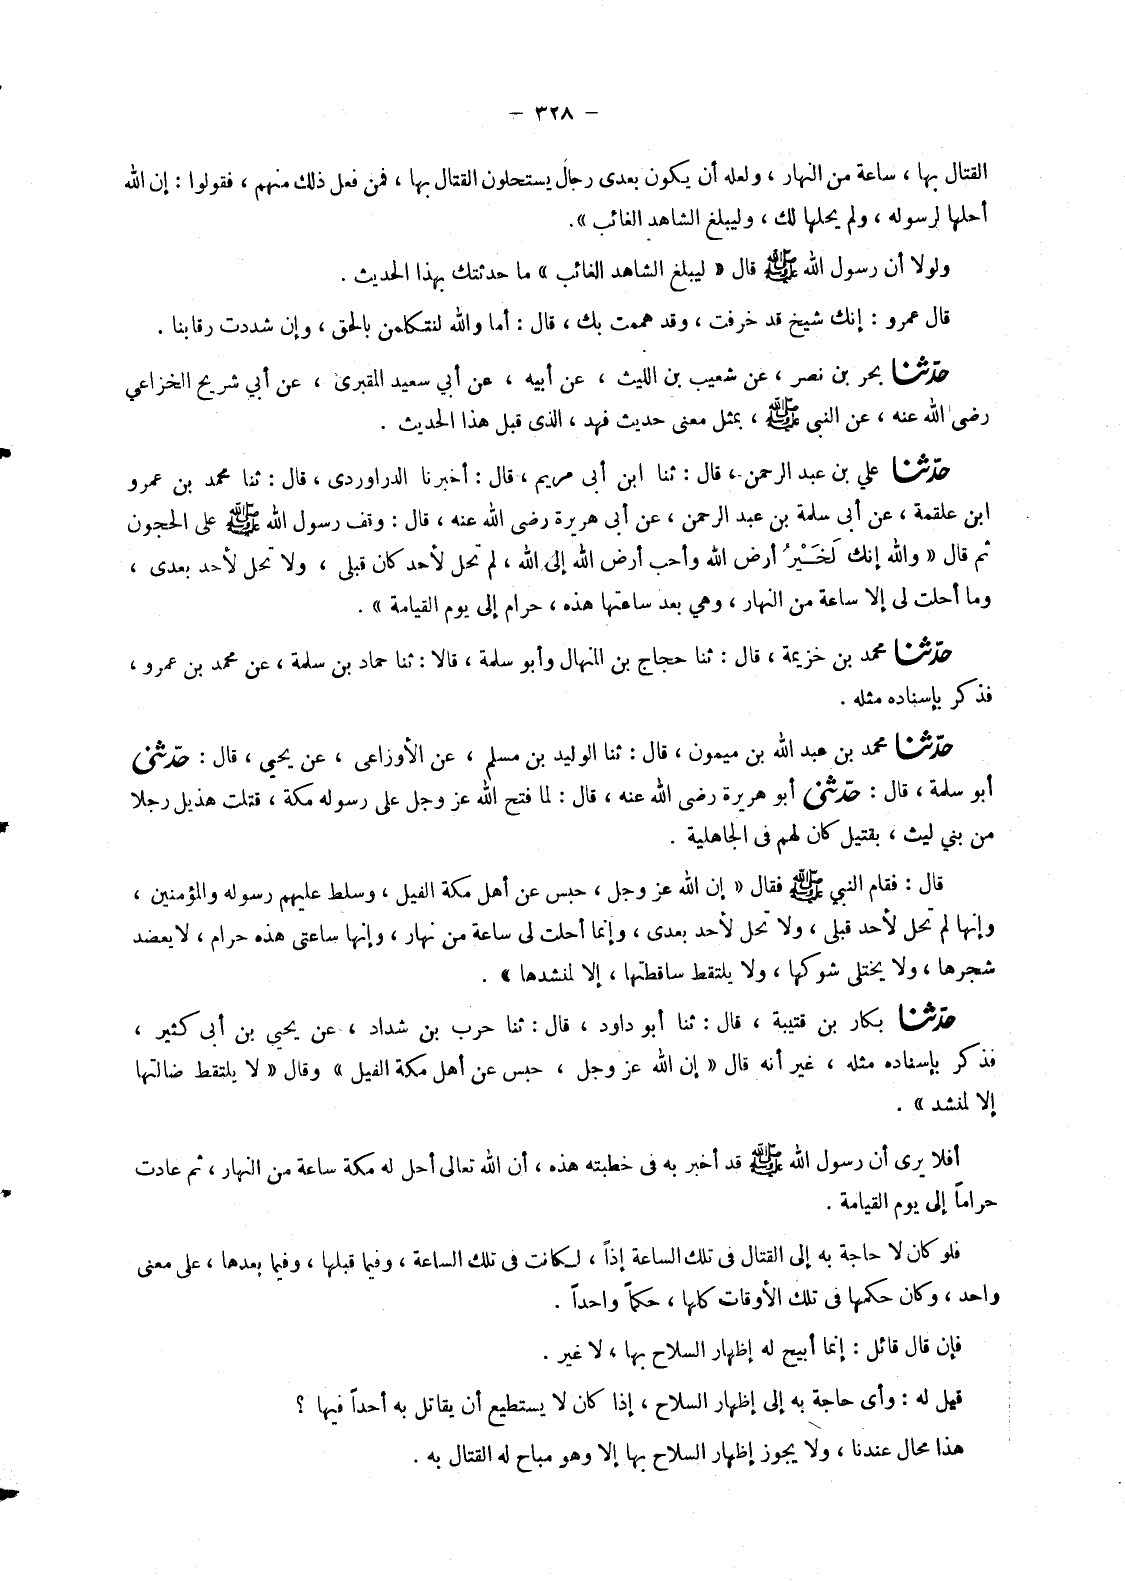 - ٣٢٨ -
القتال بها ، ساعة من النهار ، ولعله أن يكون بعدى رجال يستحلون القتال بها ، فمن فعل ذلك منهم ، فقولوا : إن الله
أحلها لرسوله ، ولم يحلها لك ، وليبلغ الشاهد الغائب » .
ولولا أن رسول الله ﷺ قال « ليبلغ الشاهد الغائب » ما حدثتك بهذا الحديث .
قال عمرو : إنك شيخ قد خرفت ، وقد هممت بك ، قال : أما والله لنتكلمن بالحق ، وإن شددت رقابنا .
حدّثنا بحر بن نصر ، عن شعيب بن الليث ، عن أبيه ، عن أبي سعيد المقبرى ، عن أبي شريح الخزاعي
رضى الله عنه ، عن النبي ﷺ ، بمثل معنى حديث فهد ، الذى قبل هذا الحديث .
حدّثنا علي بن عبد الرحمن ، قال : ثنا ابن أبى مريم ، قال : أخبرنا الدراوردى ، قال : ثنا محمد بن عمرو
ابن علقمة ، عن أبى سلمة بن عبد الرحمن ، عن أبى هريرة رضى الله عنه ، قال : وقف رسول الله ﷺ على الحجون
ثم قال « والله إنك لَخَيْرُ أرض الله وأحب أرض الله إلى الله ، لم تحل لأحد كان قبلى ، ولا تحل لأحد بعدى ،
وما أحلت لى إلا ساعة من النهار ، وهي بعد ساعتها هذه ، حرام إلى يوم القيامة » .
حدّثنا محمد بن خزيمة ، قال : ثنا حجاج بن المنهال وأبو سلمة ، قالا : ثنا حماد بن سلمة ، عن محمد بن عمرو ،
فذكر بإسناده مثله .
حدّثنا محمد بن عبد الله بن ميمون ، قال : ثنا الوليد بن مسلم ، عن الأوزاعى ، عن يحيى ، قال : حدّثنى
أبو سلمة ، قال : حدّثنى أبو هريرة رضى الله عنه ، قال : لما فتح الله عز وجل على رسوله مكة ، قتلت هذيل رجلا
من بني ليث ، بقتيل كان لهم فى الجاهلية .
قال : فقام النبي ﷺ فقال « إن الله عز وجل ، حبس عن أهل مكة الفيل ، وسلط عليهم رسوله والمؤمنين ،
وإنها لم تحل لأحد قبلى ، ولا تحل لأحد بعدى ، وإنما أحلت لى ساعة من نهار ، وإنها ساعتى هذه حرام ، لايعضد
شجرها ، ولا يختلى شوكها ، ولا يلتقط ساقطتها ، إلا لمنشدها » .
حدّثنا بكار بن قتيبة ، قال : ثنا أبو داود ، قال : ثنا حرب بن شداد ، عن يحيي بن أبى كثير ،
فذكر بإسناده مثله ، غير أنه قال « إن الله عز وجل ، حبس عن أهل مكة الفيل » وقال « لا يلتقط ضالتها
إلا لمنشد » .
أفلا يرى أن رسول الله ﷺ قد أخبر به فى خطبته هذه ، أن الله تعالى أحل له مكة ساعة من النهار ، ثم عادت
حراماً إلى يوم القيامة .
فلو كان لا حاجة به إلى القتال فى تلك الساعة إذاً ، لكانت فى تلك الساعة ، وفيما قبلها ، وفيما بعدها ، على معنى
واحد ، وكان حكمها فى تلك الأوقات كلها ، حكماً واحداً .
فإن قال قائل : إنما أبيح له إظهار السلاح بها ، لا غير .
قيل له : وأى حاجة به إلى إظهار السلاح ، إذا كان لا يستطيع أن يقاتل به أحداً فيها ؟
هذا محال عندنا ، ولا يجوز إظهار السلاح بها إلا وهو مباح له القتال به .